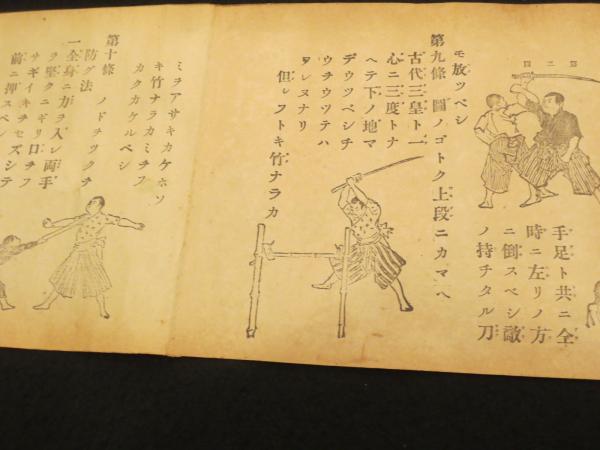 第二圖
手足ト共ニ全
時ニ左リノ方
ニ倒スベシ敵
ノ持チタル刀
モ放ツベシ
第九條 圖ノゴトク上段ニカマヘ
古代三皇ト一
心ニ三度トナ
ヘテ下ノ地マ
デウツベシチ
ウチウツテハ
ワレヌナリ
但シフトキ竹ナラカ
ミヲアサキカケホソ
キ竹ナラカミチフ
カクカケルベシ
第十條 ノドヲツクチ
防グ法
一全身ニ力ヲ入レ両手
ヲ堅クニギリ口チフ
サギイキチセズシテ
前ニ押スベシ